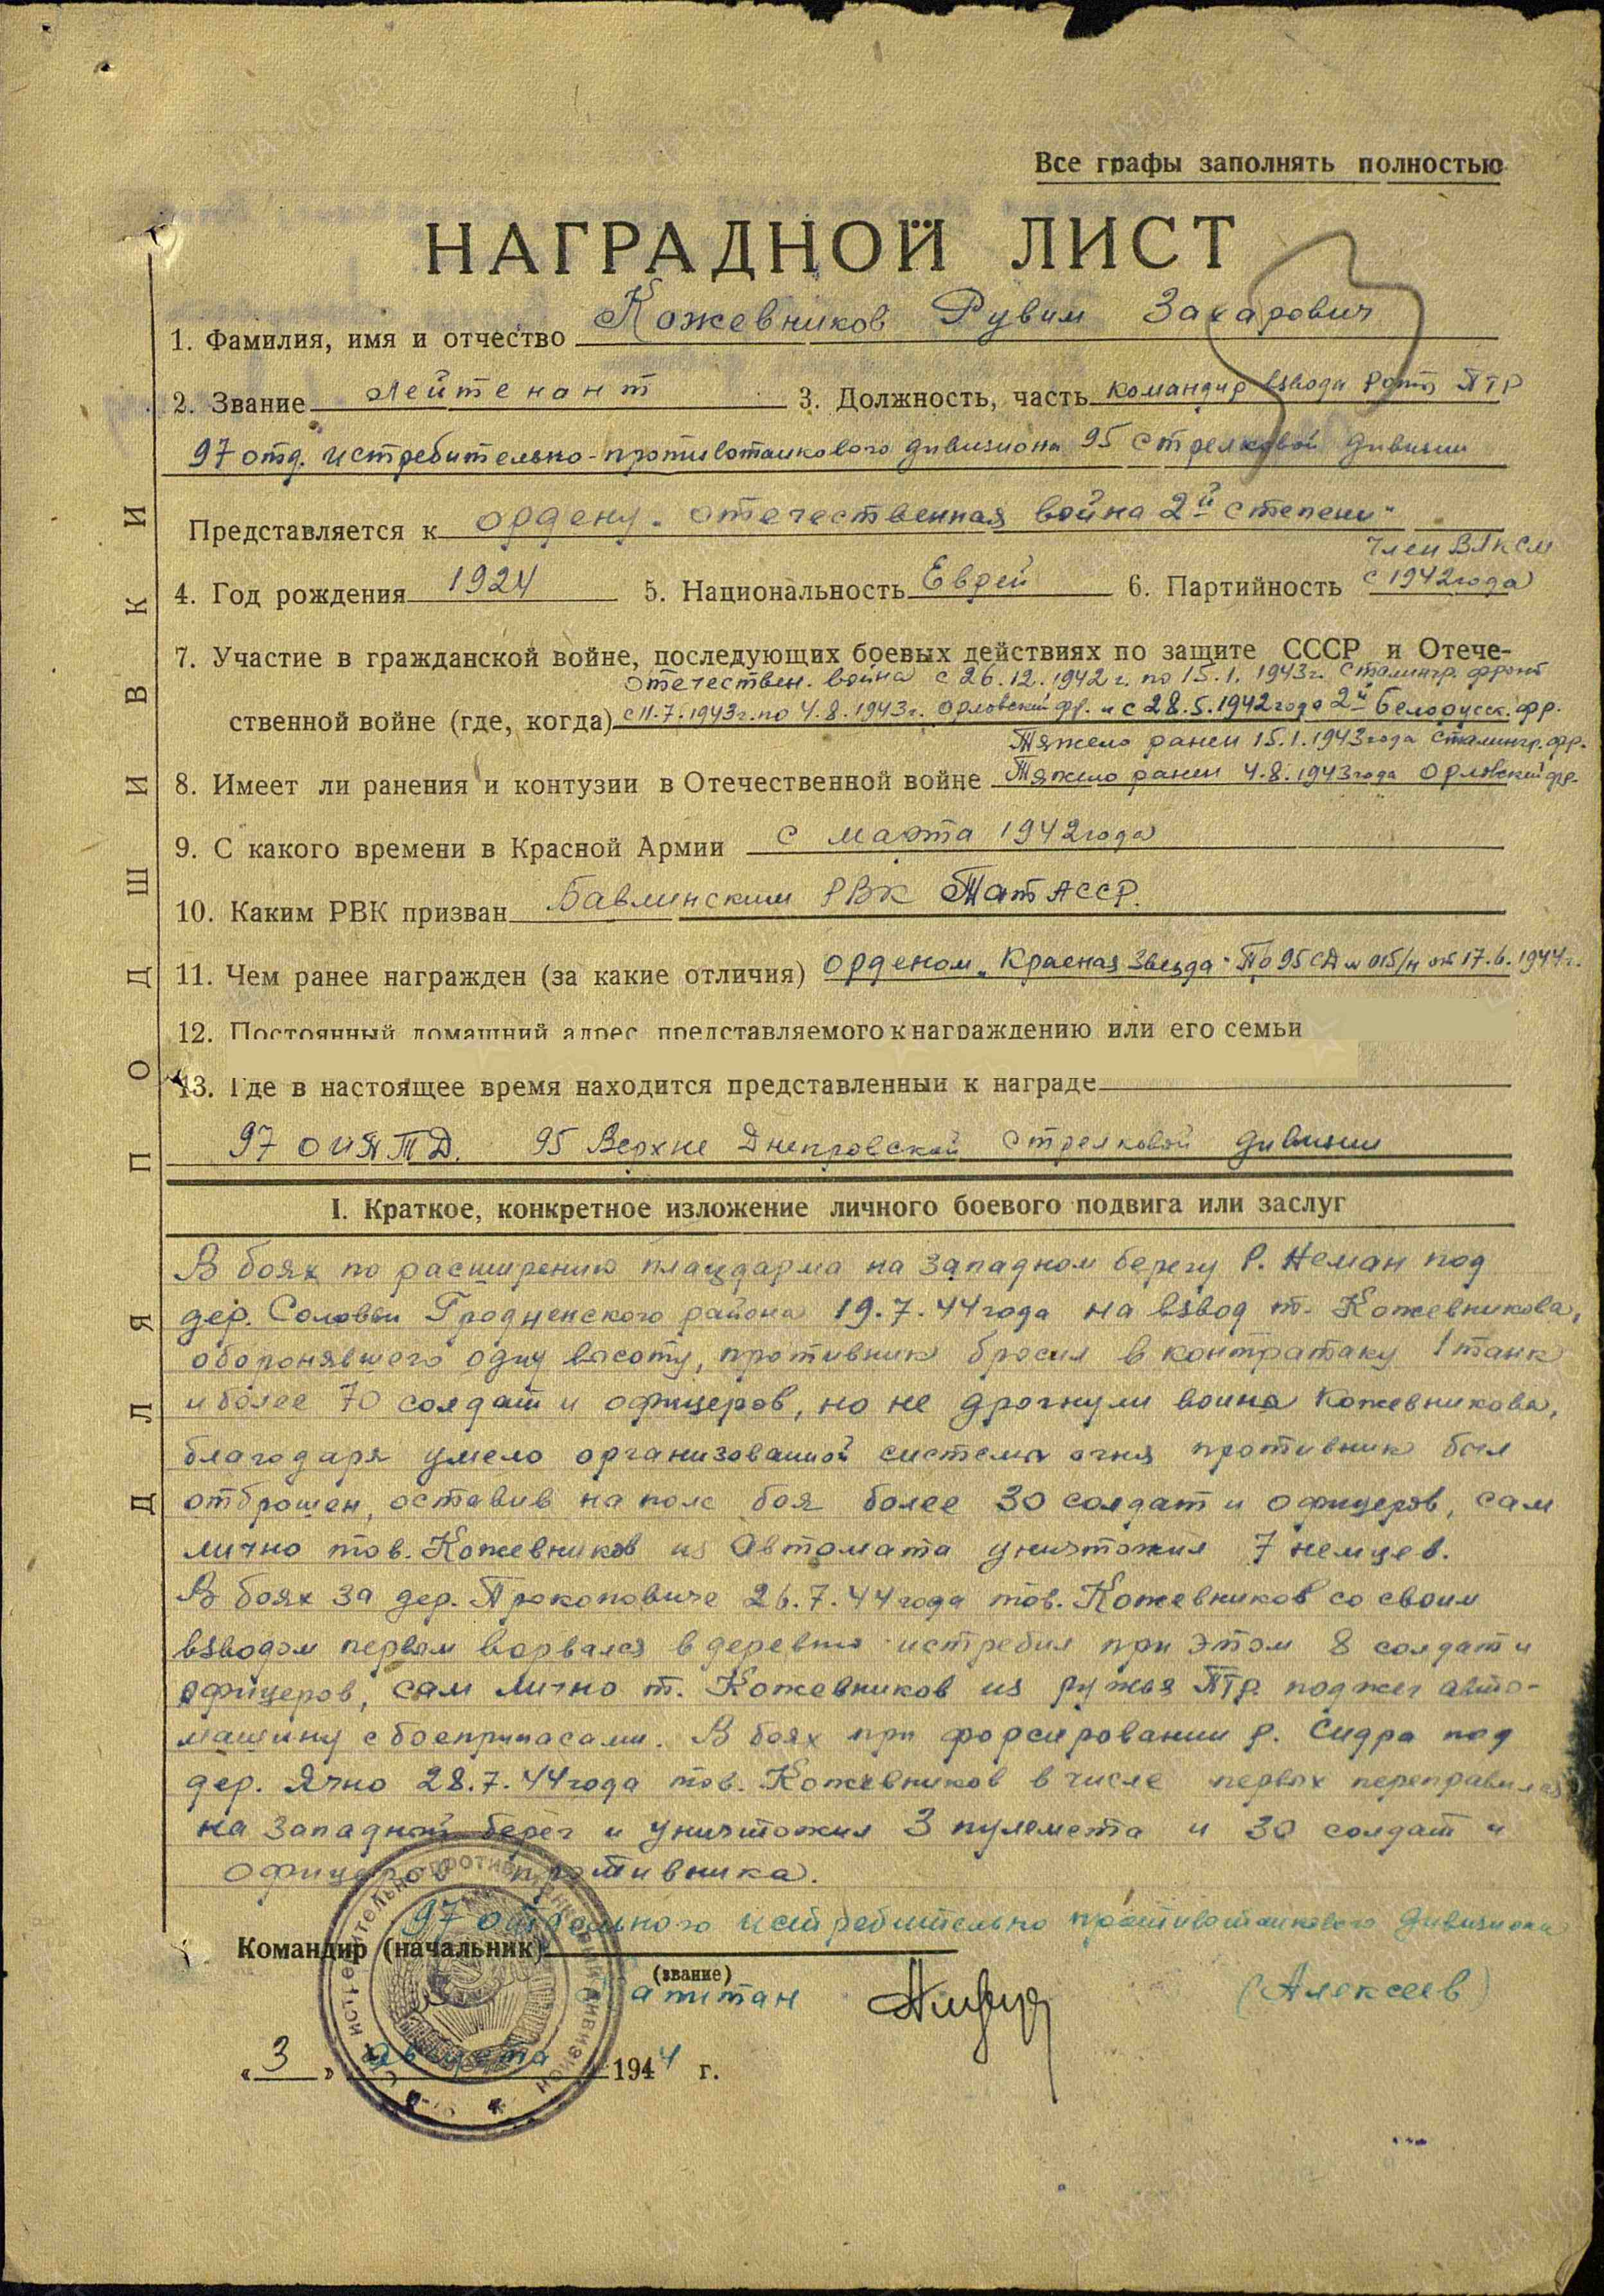 Все графы заполнять полностью
НАГРАДНОЙ ЛИСТ
1. Фамилия, имя и отчество Кожевников Рувим Захарович
2. Звание лейтенант 3. Должность, часть командир взвода роты ПТР
97 отд. истребительно-противотанкового дивизиона 95 стрелковой дивизии
Представляется к ордену „Отечественная война 2й степени"
член ВЛКСМ
4. Год рождения 1924 5. Национальность Еврей 6. Партийность с 1942 года
7. Участие в гражданской войне, последующих боевых действиях по защите СССР и Отече-
отечествен. война с 26.12.1942 г. по 15.1.1943 г. Сталингр. фронт
ственной войне (где, когда) с 11.7.1943 г. по 4.8.1943 г. Орловский фр. и с 28.5.1942 года 2й Белорусск. фр.
Тяжело ранен 15.1.1943 года Сталингр. фр.
8. Имеет ли ранения и контузии в Отечественной войне Тяжело ранен 4.8.1943 года Орловский фр.
9. С какого времени в Красной Армии с марта 1942 года
10. Каким РВК призван Бавлинским РВК ТатАССР.
11. Чем ранее награжден (за какие отличия) орденом „Красная Звезда" По 95 СД № 015/н от 17.6.1944 г.
12. Постоянный домашний адрес представляемого к награждению или его семьи
13. Где в настоящее время находится представленный к награде
97 ОИПТД. 95 Верхне Днепровской стрелковой дивизии
I. Краткое, конкретное изложение личного боевого подвига или заслуг
В боях по расширению плацдарма на западном берегу р. Неман под
дер. Соловьи Гродненского района 19.7.44 года на взвод т. Кожевникова,
оборонявшего одну высоту, противник бросил в контратаку 1 танк
и более 70 солдат и офицеров, но не дрогнули воины Кожевникова,
благодаря умело организованной системы огня противник был
отброшен, оставив на поле боя более 30 солдат и офицеров, сам
лично тов. Кожевников из автомата уничтожил 7 немцев.
В боях за дер. Прокоповиче 26.7.44 года тов. Кожевников со своим
взводом первым ворвался в деревню истребил при этом 8 солдат и
офицеров, сам лично т. Кожевников из ружья ПТР поджег авто-
машину с боеприпасами. В боях при форсировании р. Сидра под
дер. Ячно 28.7.44 года тов. Кожевников в числе первых переправился
на западной берег и уничтожил 3 пулемета и 30 солдат и
офицеров противника.
97 отдельного истребительно противотанкового дивизиона
Командир (начальник)
(звание)
капитан (Алексеев)
« 3 » августа 1944 г.
ДЛЯ ПОДШИВКИ